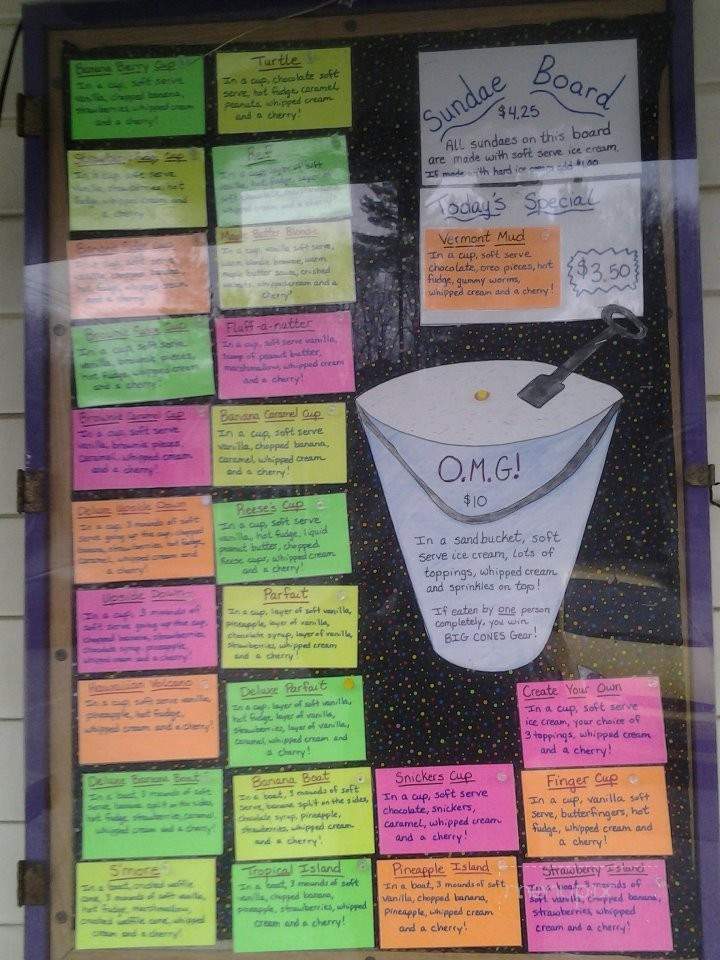 Banana Berry Cup
In a cup, soft serve
vanilla, chopped banana,
strawberries, whipped cream
and a cherry!
Turtle
In a cup, chocolate soft
serve, hot fudge, caramel,
peanuts, whipped cream
and a cherry!
Sundae Board
$4.25
All sundaes on this board
are made with soft serve ice cream.
If made with hard ice cream add $1.00
Today's Special
Vermont Mud
In a cup, soft serve
chocolate, oreo pieces, hot
fudge, gummy worms,
whipped cream and a cherry!
$3.50
Butter Blondie
In a cup, vanilla soft serve,
warm blondie brownie, warm
butter sauce, crushed
walnuts, whipped cream and a
cherry!
In a cup, soft serve
vanilla, brownie pieces,
hot fudge, whipped cream
and a cherry!
Fluff-a-nutter
In a cup, soft serve vanilla,
of peanut butter,
marshmallow, whipped cream
and a cherry!
Brownie Caramel Cup
In a cup, soft serve
vanilla, brownie pieces,
caramel, whipped cream
and a cherry!
Banana Caramel Cup
In a cup, soft serve
vanilla, chopped banana,
caramel, whipped cream
and a cherry!
O.M.G!
$10
In a sandbucket, soft
serve ice cream, lots of
toppings, whipped cream
and sprinkles on top!
If eaten by one person
completely, you win
BIG CONES Gear!
Deluxe Upside Down
In a cup, 3 mounds of soft
serve going up the cup, chopped
banana, strawberries, hot fudge,
caramel, whipped cream and
a cherry!
Reese's Cup
In a cup, soft serve
vanilla, hot fudge, liquid
peanut butter, chopped
Reese cups, whipped cream
and a cherry!
Upside Down
In a cup, 3 mounds of
soft serve, going up the cup,
chopped banana, strawberries,
chocolate syrup, pineapple,
whipped cream and a cherry!
Parfait
In a cup, layer of soft vanilla,
pineapple, layer of vanilla,
chocolate syrup, layer of vanilla,
strawberries, whipped cream
and a cherry!
Hawaiian Volcano
In a cup, soft serve vanilla,
pineapple, hot fudge,
whipped cream and a cherry!
Deluxe Parfait
In a cup, layer of soft vanilla,
hot fudge, layer of vanilla,
strawberries, layer of vanilla,
caramel, whipped cream and
a cherry!
Create Your Own
In a cup, soft serve
ice cream, your choice of
3 toppings, whipped cream
and a cherry!
Deluxe Banana Boat
In a boat, 3 mounds of soft
serve, banana split on the sides,
hot fudge, strawberries, caramel,
whipped cream and a cherry!
Banana Boat
In a boat, 3 mounds of soft
serve, banana split on the sides,
chocolate syrup, pineapple,
strawberries, whipped cream
and a cherry!
Snickers Cup
In a cup, soft serve
chocolate, snickers,
caramel, whipped cream
and a cherry!
Finger Cup
In a cup, vanilla soft
serve, butterfingers, hot
fudge, whipped cream and
a cherry!
S'more
In a boat, crushed waffle
cone, 3 mounds of soft vanilla,
hot fudge, marshmallow,
crushed waffle cone, whipped
cream and a cherry!
Tropical Island
In a boat, 3 mounds of soft
vanilla, chopped banana,
pineapple, strawberries, whipped
cream and a cherry!
Pineapple Island
In a boat, 3 mounds of soft
vanilla, chopped banana,
Pineapple, whipped cream
and a cherry!
Strawberry Island
In a boat, 3 mounds of
soft vanilla, chopped banana,
strawberries, whipped
cream and a cherry!